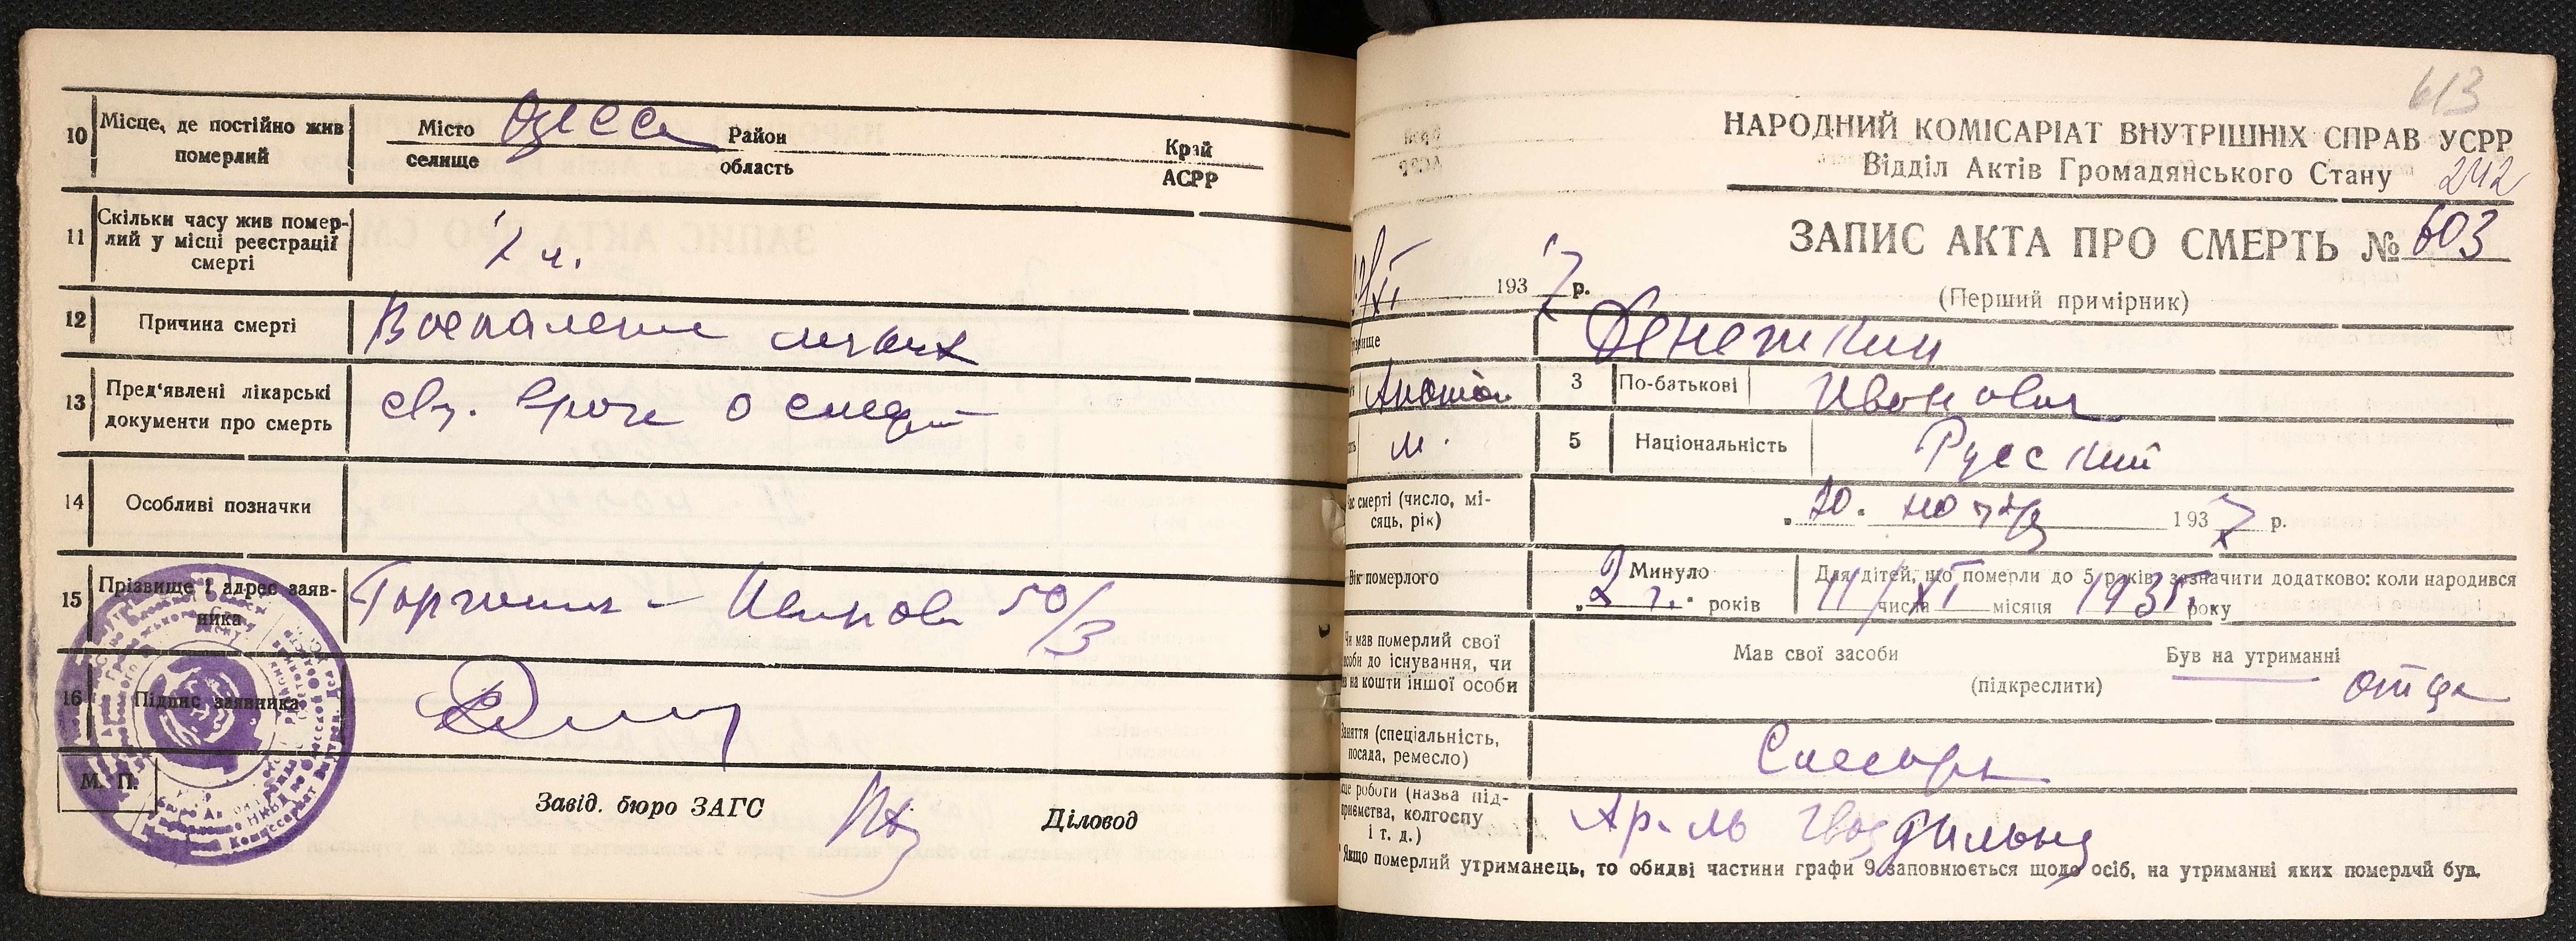 10 Місце, де постійно жив
померлий
Місто Одесса Район Край
селище область АСРР
11 Скільки часу жив помер-
лий у місці реєстрації
смерті
12 Причина смерті Воспаление легких
13 Пред'явлені лікарські
документи про смерть
врача о смерти
14 Особливі позначки
15 Прізвище і адрес заяв-
ника
50/3
16 Підпис заявника
М. П.
Завід. бюро ЗАГС Діловод
613
НАРОДНИЙ КОМІСАРІАТ ВНУТРІШНІХ СПРАВ УСРР
Відділ Актів Громадянського Стану 242
ЗАПИС АКТА ПРО СМЕРТЬ № 603
193 7 р.
(Перший примірник)
Денежкин
3 По-батькові Иванович
м. 5 Національність Русский
смерті (число, мі-
сяць, рік)
20. ноября 193 7 р.
Вік померлого
Минуло
2 г. років
Для дітей, що померли до 5 років, зазначити додатково: коли народився
11 числа XI місяця 1935 року
мав померлий свої
до існування, чи
на кошти іншої особи
Мав свої засоби Був на утриманні
(підкреслити) отца
(спеціальність,
посада, ремесло)
Слесарь
роботи (назва під-
приємства, колгоспу
і т. д.)
Якщо померлий утриманець, то обидві частини графи 9 заповнюється щодо осіб, на утриманні яких померлий був.